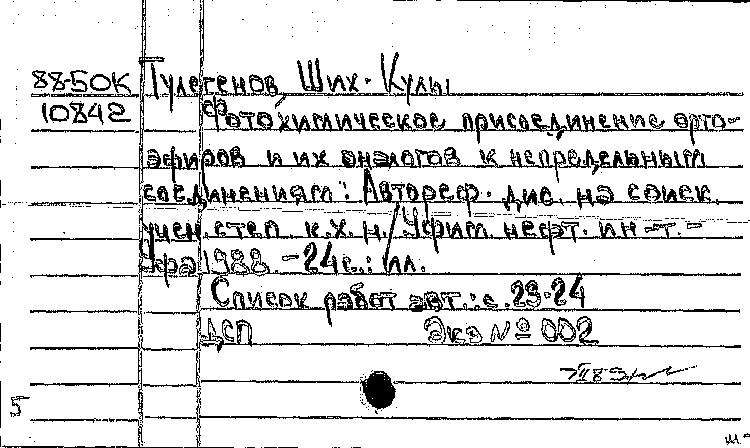 88-50К Тулегенов, Ших-Кулы
10842 Фотохимическое присоединение орто-
эфиров и их аналогов к непредельным
соединениям: Автореф. дис. на соиск.
учен. степ. к.х.н./Уфим. нефт. ин-т.-
Уфа, 1988. - 24 с.: ил.
Список работ авт.: с. 23-24
ДСП Экз № 002
5